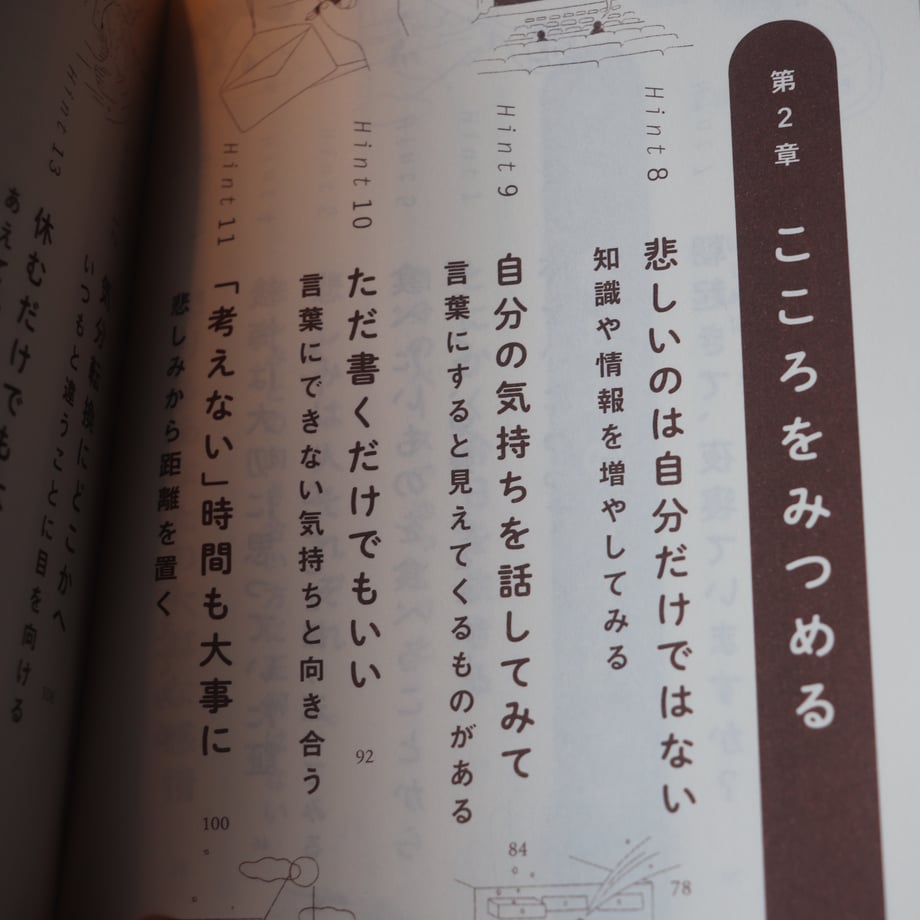 第2章 こころをみつめる
Hint 8 悲しいのは自分だけではない 78
知識や情報を増やしてみる
Hint 9 自分の気持ちを話してみて 84
言葉にすると見えてくるものがある
Hint 10 ただ書くだけでもいい 92
言葉にできない気持ちと向き合う
Hint 11 「考えない」時間も大事に 100
悲しみから距離を置く
気分転換にどこかへ
いつもと違うことに目を向ける
Hint 13 休むだけでも